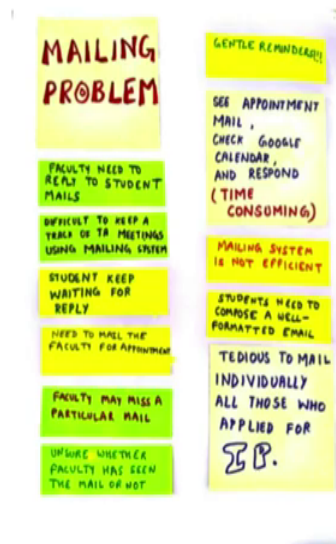 MAILING
PROBLEM
FACULTY NEED TO
REPLY TO STUDENT
MAILS
DIFFICULT TO KEEP A
TRACK OF TA MEETINGS
USING MAILING SYSTEM
STUDENT KEEP
WAITING FOR
REPLY
NEED TO MAIL THE
FACULTY FOR APPOINTMENT
FACULTY MAY MISS A
PARTICULAR MAIL
UNSURE WHETHER
FACULTY HAS SEEN
THE MAIL OR NOT
GENTLE REMINDERS!!!
SEE APPOINTMENT
MAIL,
CHECK GOOGLE
CALENDAR,
AND RESPOND
(TIME
CONSUMING)
MAILING SYSTEM
IS NOT EFFICIENT
STUDENTS NEED TO
COMPOSE A WELL-
FORMATTED EMAIL
TEDIOUS TO MAIL
INDIVIDUALLY
ALL THOSE WHO
APPLIED FOR
IP.